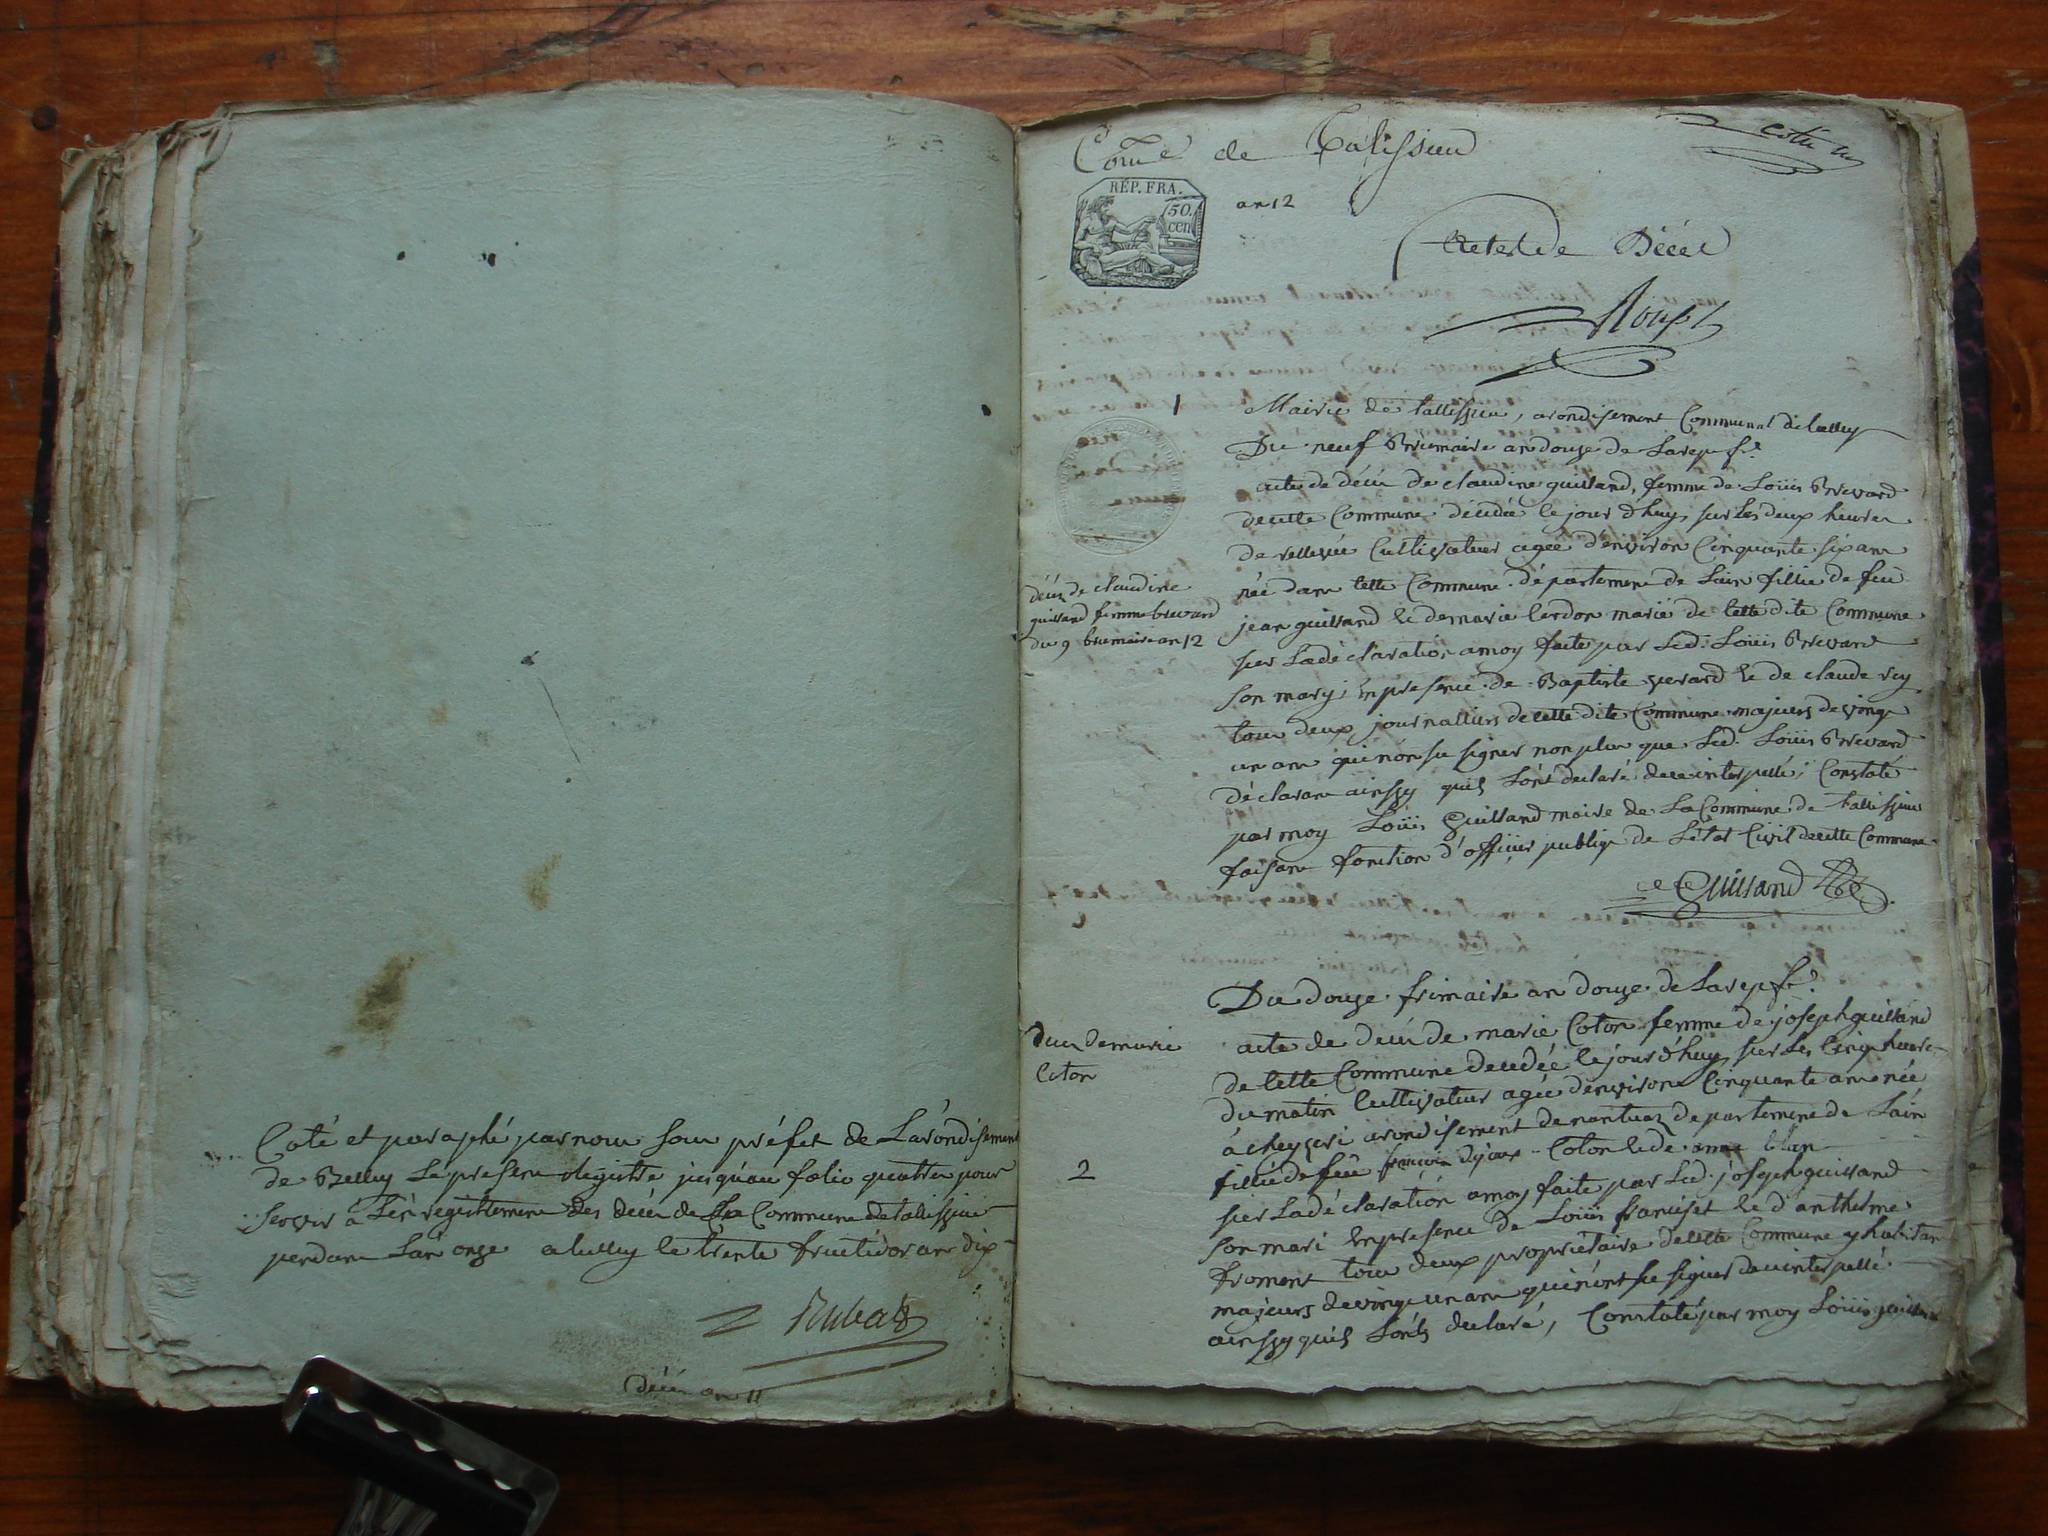 Coté et paraphé par nous sous préfet de L'arondisement
de Belley Le present Registre jusqu'au folio quatre pour
servir à L'enregistrement des décès de La Commune de talissieu
pendant L'an onze a belley le trente fructidor an dix
Rubat
Décès an 11
Comne de Talissieu
cotté un
RÉP. FRA.
50.
cen
an 12
Actes de Décès
1
Mairie de tallissieu, arondisement Communal de belley
Du neuf Brumaire an douze de La rep. fse.
acte de décès de claudine guilland, femme de Loüis Brevard
de cette Commune décédée le jour d'huy sur Les deux heures
de rellevée Cultivateur agée d'environ Cinquante six ans
née dans cette Commune département de L'ain fillie de feu
jean guilland & de marie cerdon mariés de cette dite Commune
sur La déclaration a moy faite par Led. Loüis Brevard
son mary, en presence de Baptiste gerard & de claude rey
tous deux journalliers de cette dite Commune majeurs de vingt
un ans qui n'on su signer non plus que Led. Loüis Brevard
déclarant ainssy quils L'ont declaré de ce interpellé; Constaté
par moy Loüis Guilland maire de La Commune de tallissieu
faisant fonction d'officier publiq de L'état Civil de cette Commune
Guilland
décès de claudine
guilland femme brevard
du 9 brumaire an 12
Du douze frimaire an douze de La rep. fse.
acte de décès de marie Coton femme de joseph guilland
de cette Commune decedée le jour d'huy sur Les Cinq heures
du matin Cultivateur agée d'environ Cinquante ans née
à cheyseri arondisement de nantua departement de L'ain
fillie de feu françois Coton & de anne blan
sur La déclaration a moy faite par Led. joseph guilland
son mari en presence de Loüis francjet & d'anthelme
froment tous deux proprietaire de cette Commune y habitan
majeurs de vingt un ans qui n'ont su signer de ce interpellé
ainssy quils L'onts declaré, Constaté par moy Loüis guilland
décès de marie
Coton
2